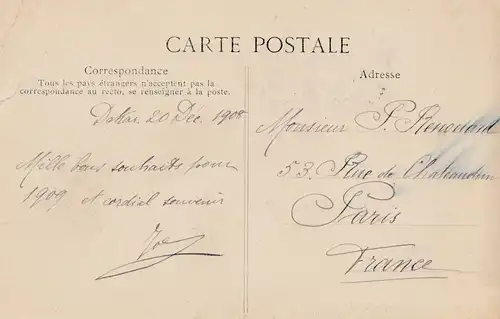 CARTE POSTALE
Correspondance
Tous les pays étrangers n'acceptent pas la
correspondance au recto, se renseigner à la poste.
Dakar 20 Déc. 1908
Mille bons souhaits pour
1909 et cordial souvenir
Adresse
Monsieur P. Renouard
53, Rue de Chateaudun
Paris
France